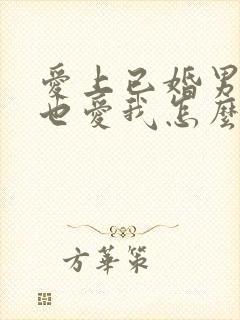 愛上已婚男
也愛我怎麼
方華策